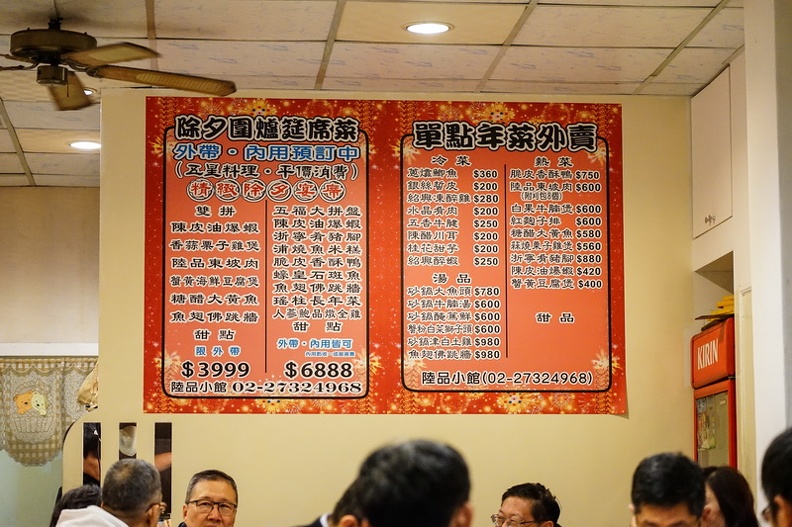 除夕圍爐筵席菜
外帶・內用預訂中
(五星料理・平價消費)
精緻除夕宴席
雙拼
陳皮油爆蝦
香蒜栗子雞煲
陸品東坡肉
蟹黃海鮮豆腐煲
糖醋大黃魚
魚翅佛跳牆
甜點
限外帶
$3999
五福大拼盤
陳皮油爆蝦
浙寧肴豬腳
浦燒魚米糕
脆皮香酥鴨
蠔皇石斑魚
魚翅佛跳牆
瑤柱長年菜
人蔘鮑品燉全雞
甜點
外帶・內用皆可
$6888
陸品小館 02-27324968
單點年菜外賣
冷菜
蔥㸆鯽魚 $360
銀絲蜇皮 $200
紹興凍醉雞 $280
水晶肴肉 $200
五香牛腱 $250
陳醋川耳 $200
桂花甜芋 $200
紹興醉蝦 $250
湯品
砂鍋大魚頭 $780
砂鍋牛腩湯 $600
砂鍋醃篤鮮 $600
蟹粉白菜獅子頭 $600
砂鍋津白土雞 $980
魚翅佛跳牆 $980
熱菜
脆皮香酥鴨 $750
陸品東坡肉 $600
(附刈包8個)
白果牛腩煲 $600
紅麴子排 $600
糖醋大黃魚 $580
蒜燒栗子雞煲 $560
浙寧肴豬腳 $880
陳皮油爆蝦 $420
蟹黃豆腐煲 $400
甜品
陸品小館(02-27324968)
KIRIN